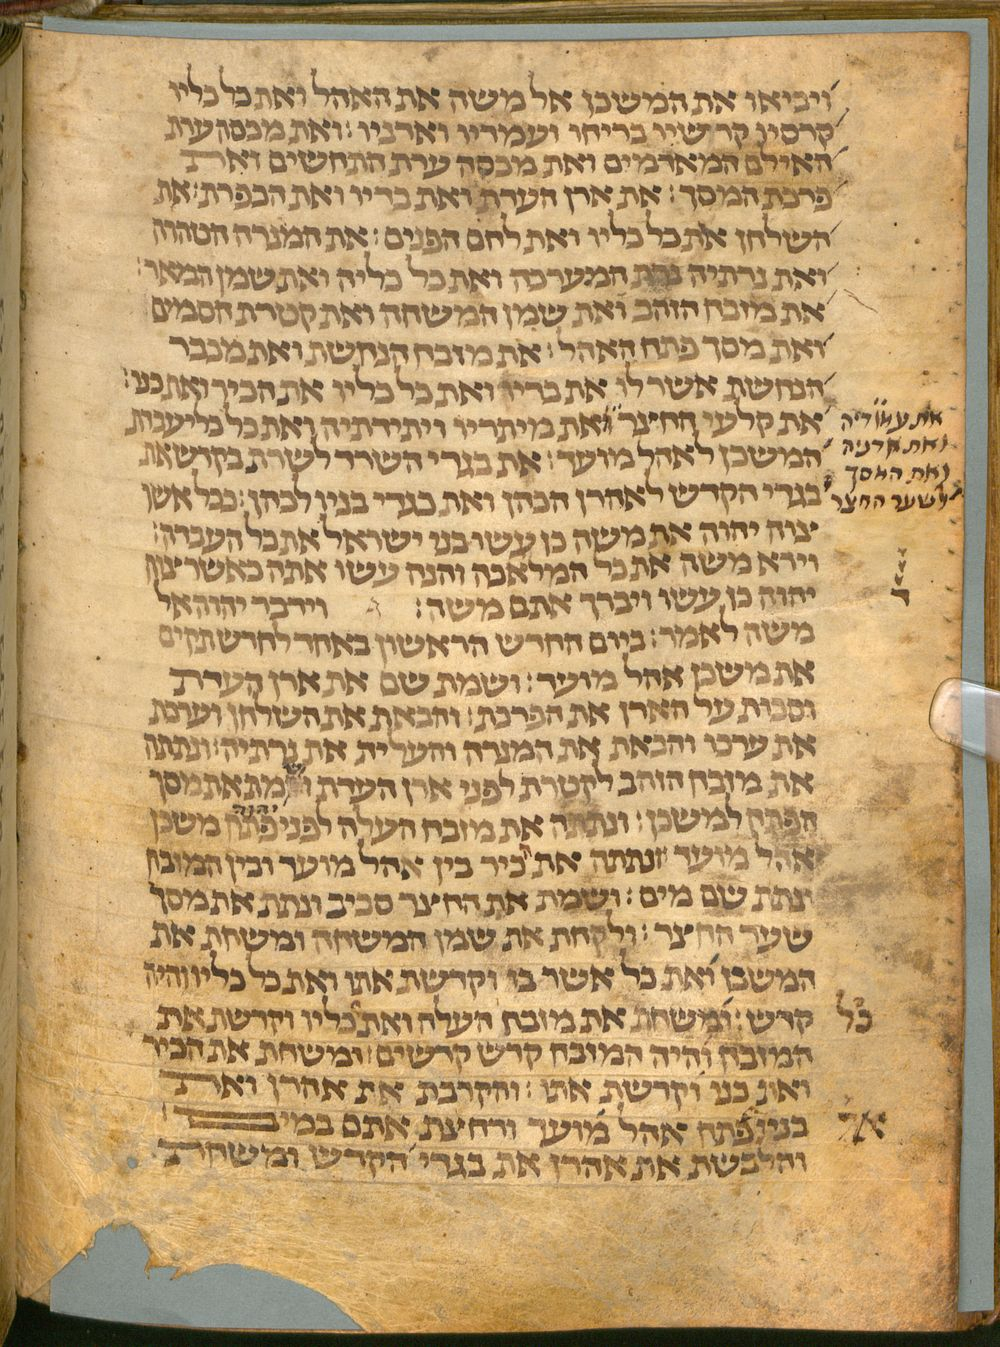 ויביאו את המשכן אל משה את האהל ואת כל כליו
קרסיו קרשיו בריחו ועמדיו ואדניו : ואת מכסה ערת
האילם המאדמים ואת מכסה ערת התחשים ואת
פרכת המסך : את ארן העדת ואת בדיו ואת הכפרת : את
השלחן את כל כליו ואת לחם הפנים : את המנרה הטהרה
ואת נרתיה נרת המערכה ואת כל כליה ואת שמן המאר :
את מזבח הזהב ואת שמן המשחה ואת קטרת הסמים
ואת מסך פתח האהל : את מזבח הנחשת ואת מכבר
הנחשת אשר לו את בדיו ואת כל כליו את הכיר ואת כנו :
את קלעי החיצר ואת מיתריו ויתידתיה ואת כל כלי עבדת
המשכן לאהל מועד : את בגדי השרד לשרת בקדש את
בגדי הקדש לאהרן הכהן ואת בגדי בניו לכהן : ככל אשר
יצוה יהוה את משה כן עשו בני ישראל את כל העבדה :
וירא משה את כל המלאכה והנה עשו אתה כאשר צוה
יהוה כן עשו ויברך אתם משה : וידבר יהוה אל
משה לאמר : ביום החדש הראשון באחד לחדש תקים
את משכן אהל מועד : ושמת שם את ארן העדת
וסכות על הארן את הפרכת : והבאת את השלחן וערכת
את ערכו והבאת את המנרה והעלית את נרתיה : ונתתה
את מזבח הזהב לקטרת לפני ארן העדת ושמת את מסך
הפתח למשכן : ונתתה את מזבח העלה לפני פתח משכן
אהל מועד ונתתה את הכיר בין אהל מועד ובין המזבח
ונתת שם מים : ושמת את החיצר סביב ונתת את מסך
שער החצר : ולקחת את שמן המשחה ומשחת את
המשכן ואת כל אשר בו וקדשת אתו ואת כל כליו והיה
קדש : ומשחת את מזבח העלה ואת כליו וקדשת את
המזבח והיה המזבח קדש קדשים : ומשחת את הכיר
ואת כנו וקדשת אתו : והקרבת את אהרן ואת
בניו פתח אהל מועד ורחצת אתם במים
והלבשת את אהרן את בגדי הקדש ומשחת
את עמודיה
ואת אדניה
ואת המסך
לשער החצר
כל